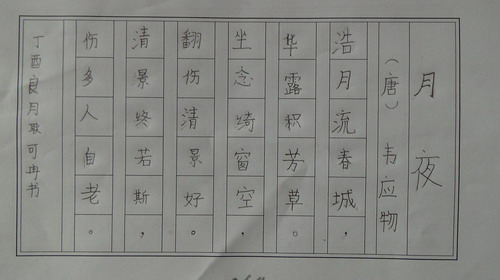 月夜
（唐）韦应物
浩月流春城，
华露积芳草。
坐念绮窗空，
翻伤清景好。
清景终若斯，
伤多人自老。
丁酉良月取可冉书